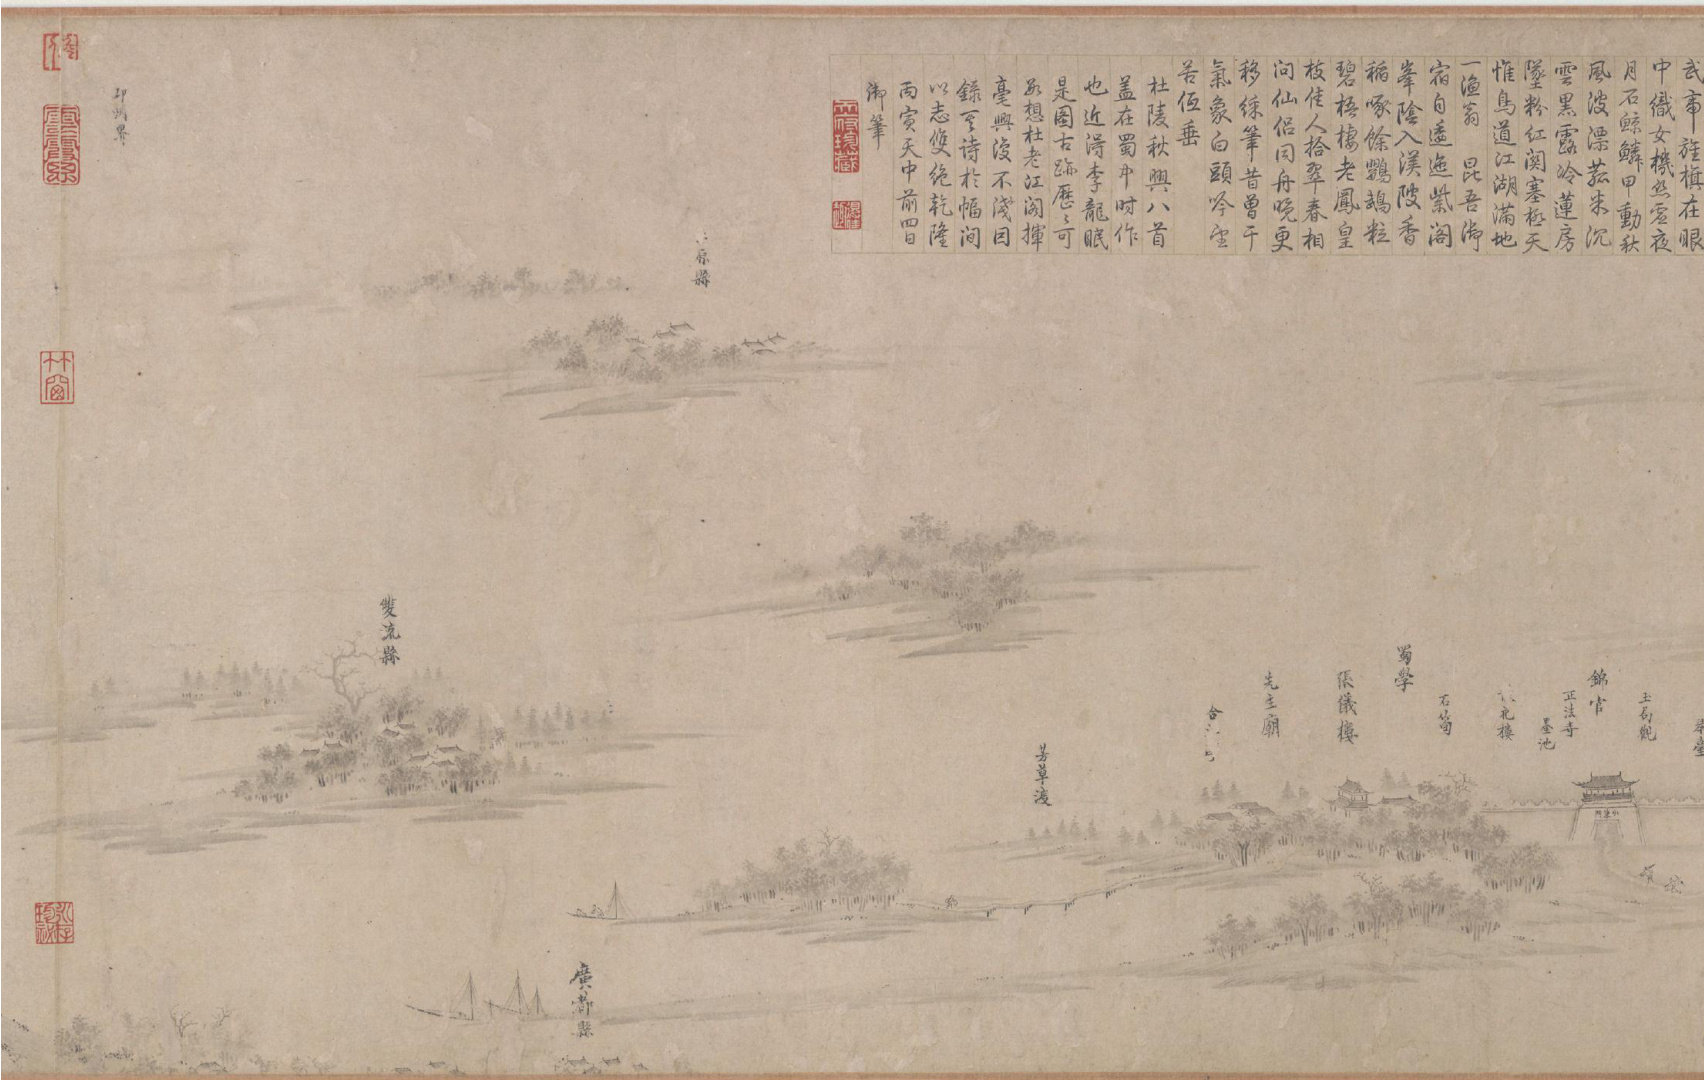 武帝旌旗在眼
中織女機絲虛夜
月石鯨鱗甲動秋
風波漂菰米沉
雲黑露冷蓮房
墜粉紅關塞極天
惟鳥道江湖滿地
一漁翁 昆吾御
宿自逶迤紫閣
峯陰入渼陂香
稻啄餘鸚鵡粒
碧梧棲老鳳皇
枝佳人拾翠春相
問仙侶同舟晚更
移綵筆昔曾干
氣象白頭吟望
苦低垂
杜陵秋興八首
蓋在蜀中時作
也近得李龍眠
是圖古跡歷〻可
想杜老江閣揮
毫興復不淺因
錄其詩於幅間
以志雙絕乾隆
丙寅天中前四日
御筆
玉局觀
錦官
正法寺
墨池
樓
石筍
蜀學
張儀樓
先主廟
合
芳草渡
縣
廣都縣
雙流縣
邛州界
竹窗